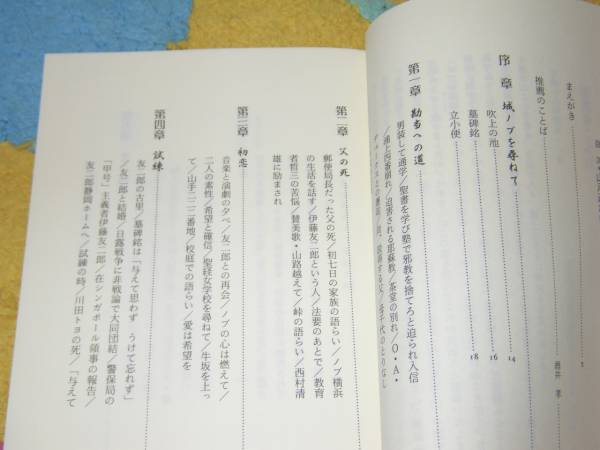 まえがき
推薦のことば
酒井 孝
序章 城ノブを尋ねて
14
吹上の池
16
墓碑銘
18
立小便
第一章 勘当への道
男装して通学／聖書を学び塾で邪教を捨てろと迫られ入信
／浦上四番崩れ／迫害される耶蘇教／茶堂の別れ／O・A・
第二章 父の死
郵便局長だった父の死／初七日の家族の語らい／ノブ横浜
の生活を話す／伊藤友二郎という人／法要のあとで／教育
者哲三の苦悩／賛美歌・山路越えて／峠の語らい／西村清
雄に励まされ
第三章 初恋
音楽と演劇の夕べ／友二郎との再会／ノブの心は燃えて／
二人の素性／希望と確信／聖経女学校を尋ねて／牛坂を上っ
て／山手二二二番地／校庭での語らい／愛は希望を
第四章 試練
友二郎の古里／墓碑銘は「与えて思わず うけて忘れず」
／友二郎と結婚／日露戦争に非戦論で大同団結／警保局の
「甲号」主義者伊藤友二郎／在シンガポール領事の報告／
友二郎静岡ホームへ／試練の時／川田トヨの死／「与えて